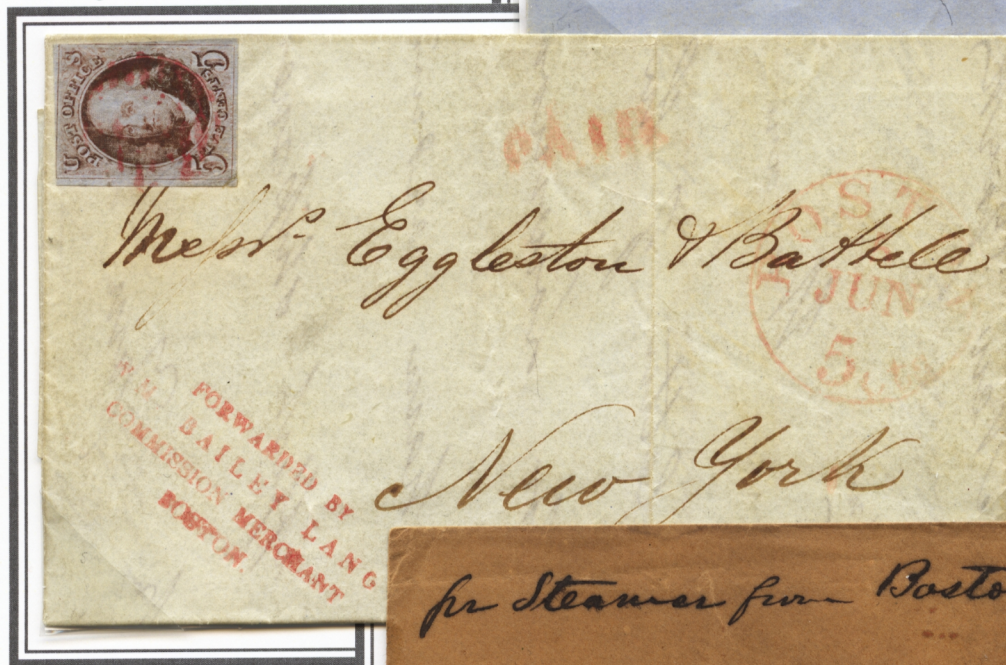 POST OFFICE
FIVE CENTS
5 5
PAID
Messrs. Eggleston & Battell
BOSTON
JUN
5 cts
New York
FORWARDED BY
BAILEY LANG
COMMISSION MERCHANT
BOSTON.
pr Steamer from Bosto